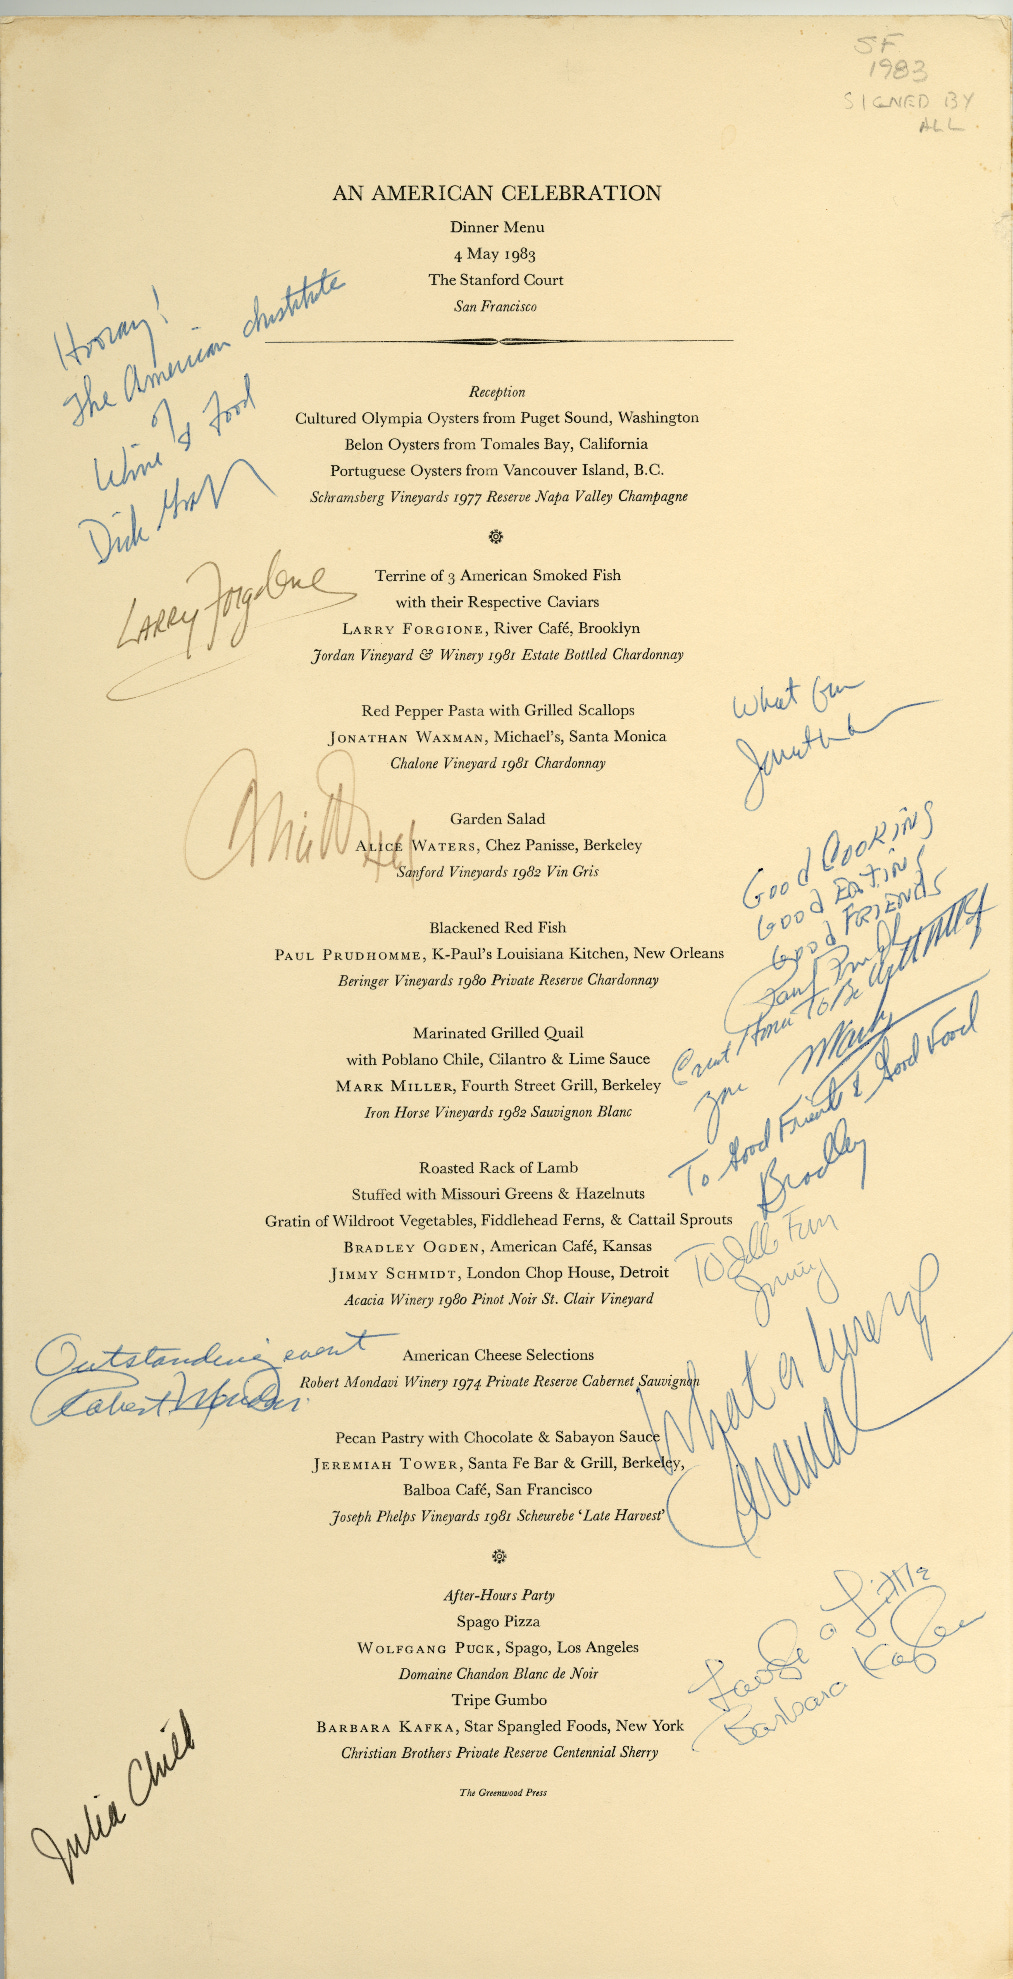 SF
1983
SIGNED BY
ALL
AN AMERICAN CELEBRATION
Dinner Menu
4 May 1983
The Stanford Court
San Francisco
Hooray!
The American Institute
of
Wine & Food
Dick
Reception
Cultured Olympia Oysters from Puget Sound, Washington
Belon Oysters from Tomales Bay, California
Portuguese Oysters from Vancouver Island, B.C.
Schramsberg Vineyards 1977 Reserve Napa Valley Champagne
Terrine of 3 American Smoked Fish
with their Respective Caviars
LARRY FORGIONE, River Café, Brooklyn
Jordan Vineyard & Winery 1981 Estate Bottled Chardonnay
Larry Forgione
Red Pepper Pasta with Grilled Scallops
JONATHAN WAXMAN, Michael's, Santa Monica
Chalone Vineyard 1981 Chardonnay
What fun
Jonathan
Garden Salad
ALICE WATERS, Chez Panisse, Berkeley
Sanford Vineyards 1982 Vin Gris
Alice Waters
Blackened Red Fish
PAUL PRUDHOMME, K-Paul's Louisiana Kitchen, New Orleans
Beringer Vineyards 1980 Private Reserve Chardonnay
Good Cooking
Good Eating
Good Friends
Paul Prudhomme
Marinated Grilled Quail
with Poblano Chile, Cilantro & Lime Sauce
MARK MILLER, Fourth Street Grill, Berkeley
Iron Horse Vineyards 1982 Sauvignon Blanc
Great time To Be with
you Mark
Roasted Rack of Lamb
Stuffed with Missouri Greens & Hazelnuts
Gratin of Wildroot Vegetables, Fiddlehead Ferns, & Cattail Sprouts
BRADLEY OGDEN, American Café, Kansas
JIMMY SCHMIDT, London Chop House, Detroit
Acacia Winery 1980 Pinot Noir St. Clair Vineyard
To Good Friends & Good Food
Bradley
To Fun
Jimmy
American Cheese Selections
Robert Mondavi Winery 1974 Private Reserve Cabernet Sauvignon
Outstanding event
Robert Mondavi
Pecan Pastry with Chocolate & Sabayon Sauce
JEREMIAH TOWER, Santa Fe Bar & Grill, Berkeley,
Balboa Café, San Francisco
Joseph Phelps Vineyards 1981 Scheurebe 'Late Harvest'
What a
Jeremiah
After-Hours Party
Spago Pizza
WOLFGANG PUCK, Spago, Los Angeles
Domaine Chandon Blanc de Noir
Tripe Gumbo
BARBARA KAFKA, Star Spangled Foods, New York
Christian Brothers Private Reserve Centennial Sherry
a Little
Barbara Kafka
The Greenwood Press
Julia Child